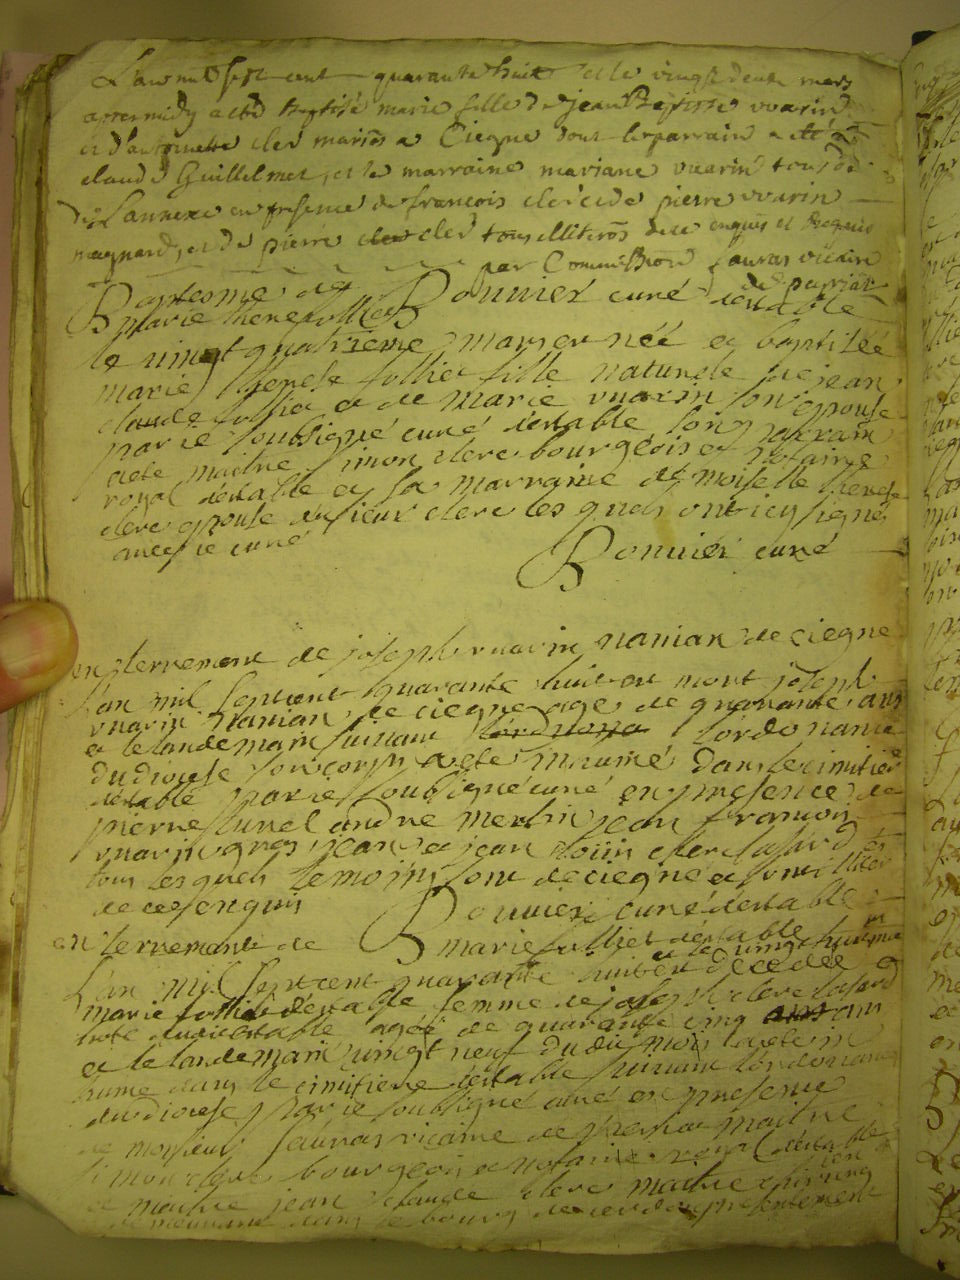 L'an mil sept cent quarante huit et le vingt deux mars
apres midy a eté baptisé marie fille de jean Baptiste vuarin
et d'antoinette clerc mariés a Ciegne dont le parrain a eté
claude Guillelmet, et la marraine mariane vuarin tous de
l'annexe en presence de francois clerc de pierre vuarin
magnard, et de pierre clerc tous illiterés de ce enquis et requis
par Commission fauras vicaire
Baptesme de Bonnier curé destable
marie therese follliet
le vingt quatrieme mars est née et baptisée
marie therese folliet fille naturele de jean
claude folliet et de marie vuarin son epouse
par ie soubsigné curé destable son parrain
a eté maitre simon clerc bourgeois et notaire
royal destable et sa marraine demoiselle therese
clerc epouse du sieur clerc les quels ont icy signé
avec ie curé
Bonnier curé
enterrement de joseph vuarin naniam de ciegne
l'an mil septcent quarante huit est mort joseph
vuarin naniam de ciegne agé de quarante ans
et le landemain suivant l'ordonance
du diocese son corps a eté inumé dans le cimitier
destable par ie soubsigné curé en presence de
pierre andre merlin jean francois
vuarin gros jean et jean clerc
tous les quels temoins sont de ciegne et
de ce enquis Bonnier curé destable
enterrement de marie folliet destable
L'an mil septcent quarante huit et le vingt huitieme est decedée
marie folliet destable femme de joseph clerc
dudit estable agée de quarante cinq ans
et le landemain vingt neuf dudit mois a eté in
hume dans le cimitiere destable suivant l'ordonance
du diocese par ie soubsigné curé en presence
de monsieur fauras vicaire de maitre
simon clerc bourgeois et notaire royal destable
et maitre jean claude clerc maitre chirurgien
demeurant dans le bourg presentement